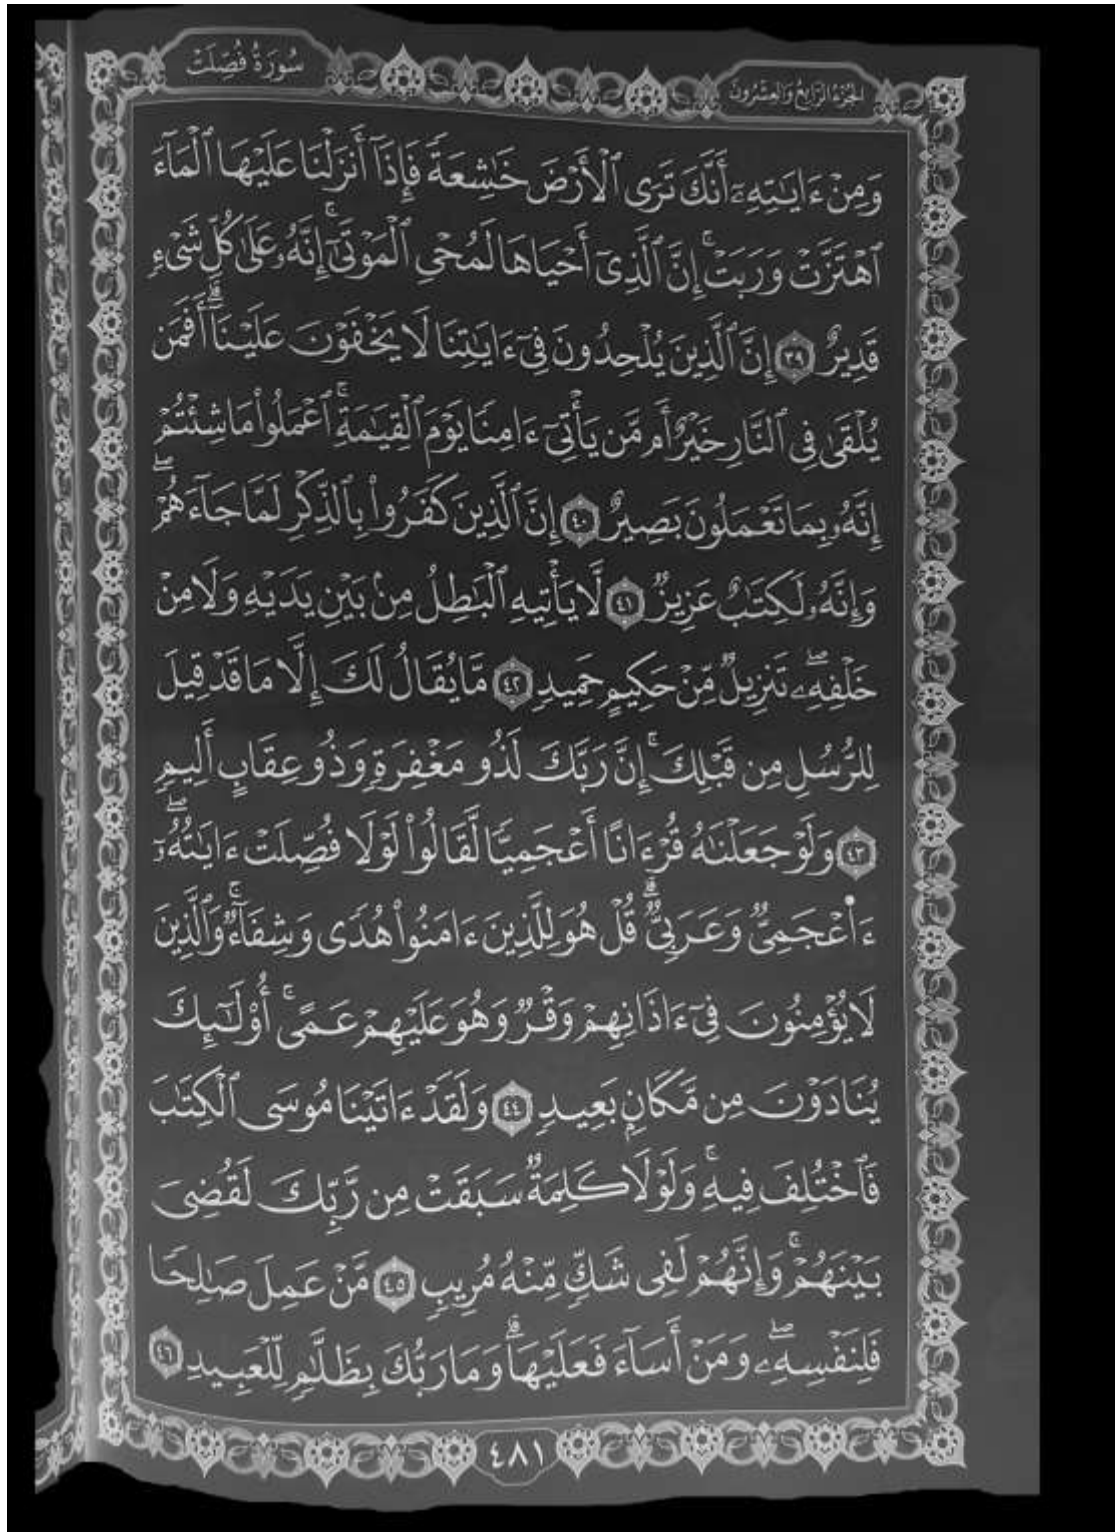 الجزء الرابع والعشرون
سُورَةُ فُصِّلَتْ
وَمِنْ ءَايَٰتِهِۦٓ أَنَّكَ تَرَى ٱلْأَرْضَ خَٰشِعَةً فَإِذَآ أَنزَلْنَا عَلَيْهَا ٱلْمَآءَ
ٱهْتَزَّتْ وَرَبَتْ ۚ إِنَّ ٱلَّذِىٓ أَحْيَاهَا لَمُحْىِ ٱلْمَوْتَىٰٓ ۚ إِنَّهُۥ عَلَىٰ كُلِّ شَىْءٍ
قَدِيرٌ ٣٩ إِنَّ ٱلَّذِينَ يُلْحِدُونَ فِىٓ ءَايَٰتِنَا لَا يَخْفَوْنَ عَلَيْنَآ ۗ أَفَمَن
يُلْقَىٰ فِى ٱلنَّارِ خَيْرٌ أَم مَّن يَأْتِىٓ ءَامِنًا يَوْمَ ٱلْقِيَٰمَةِ ۚ ٱعْمَلُوا۟ مَا شِئْتُمْ ۖ
إِنَّهُۥ بِمَا تَعْمَلُونَ بَصِيرٌ ٤٠ إِنَّ ٱلَّذِينَ كَفَرُوا۟ بِٱلذِّكْرِ لَمَّا جَآءَهُمْ ۖ
وَإِنَّهُۥ لَكِتَٰبٌ عَزِيزٌ ٤١ لَّا يَأْتِيهِ ٱلْبَٰطِلُ مِنۢ بَيْنِ يَدَيْهِ وَلَا مِنْ
خَلْفِهِۦ ۖ تَنزِيلٌ مِّنْ حَكِيمٍ حَمِيدٍ ٤٢ مَّا يُقَالُ لَكَ إِلَّا مَا قَدْ قِيلَ
لِلرُّسُلِ مِن قَبْلِكَ ۚ إِنَّ رَبَّكَ لَذُو مَغْفِرَةٍ وَذُو عِقَابٍ أَلِيمٍ
٤٣ وَلَوْ جَعَلْنَٰهُ قُرْءَانًا أَعْجَمِيًّا لَّقَالُوا۟ لَوْلَا فُصِّلَتْ ءَايَٰتُهُۥٓ ۖ
ءَا۬عْجَمِىٌّ وَعَرَبِىٌّ ۗ قُلْ هُوَ لِلَّذِينَ ءَامَنُوا۟ هُدًى وَشِفَآءٌ ۚ وَٱلَّذِينَ
لَا يُؤْمِنُونَ فِىٓ ءَاذَانِهِمْ وَقْرٌ وَهُوَ عَلَيْهِمْ عَمًى ۚ أُو۟لَٰٓئِكَ
يُنَادَوْنَ مِن مَّكَانٍۭ بَعِيدٍ ٤٤ وَلَقَدْ ءَاتَيْنَا مُوسَى ٱلْكِتَٰبَ
فَٱخْتُلِفَ فِيهِ ۚ وَلَوْلَا كَلِمَةٌ سَبَقَتْ مِن رَّبِّكَ لَقُضِىَ
بَيْنَهُمْ ۚ وَإِنَّهُمْ لَفِى شَكٍّ مِّنْهُ مُرِيبٍ ٤٥ مَّنْ عَمِلَ صَٰلِحًا
فَلِنَفْسِهِۦ ۖ وَمَنْ أَسَآءَ فَعَلَيْهَا ۗ وَمَا رَبُّكَ بِظَلَّٰمٍ لِّلْعَبِيدِ ٤٦
٤٨١